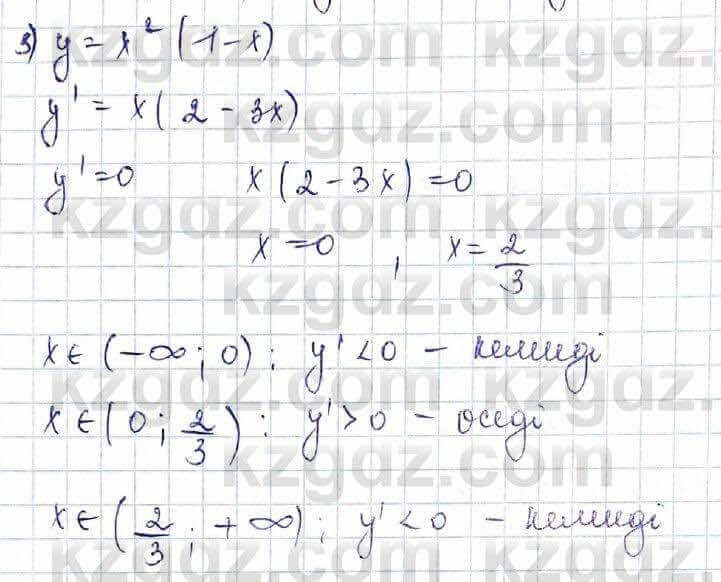 3) y = x² (1 - x)
y' = x( 2 - 3x)
y' = 0 x( 2 - 3x) = 0
x = 0 , x = 2/3
x ∈ (-∞; 0) ; y' < 0 - кемиді
x ∈ (0; 2/3) : y' > 0 - өседі
x ∈ (2/3 ; +∞) ; y' < 0 - кемиді